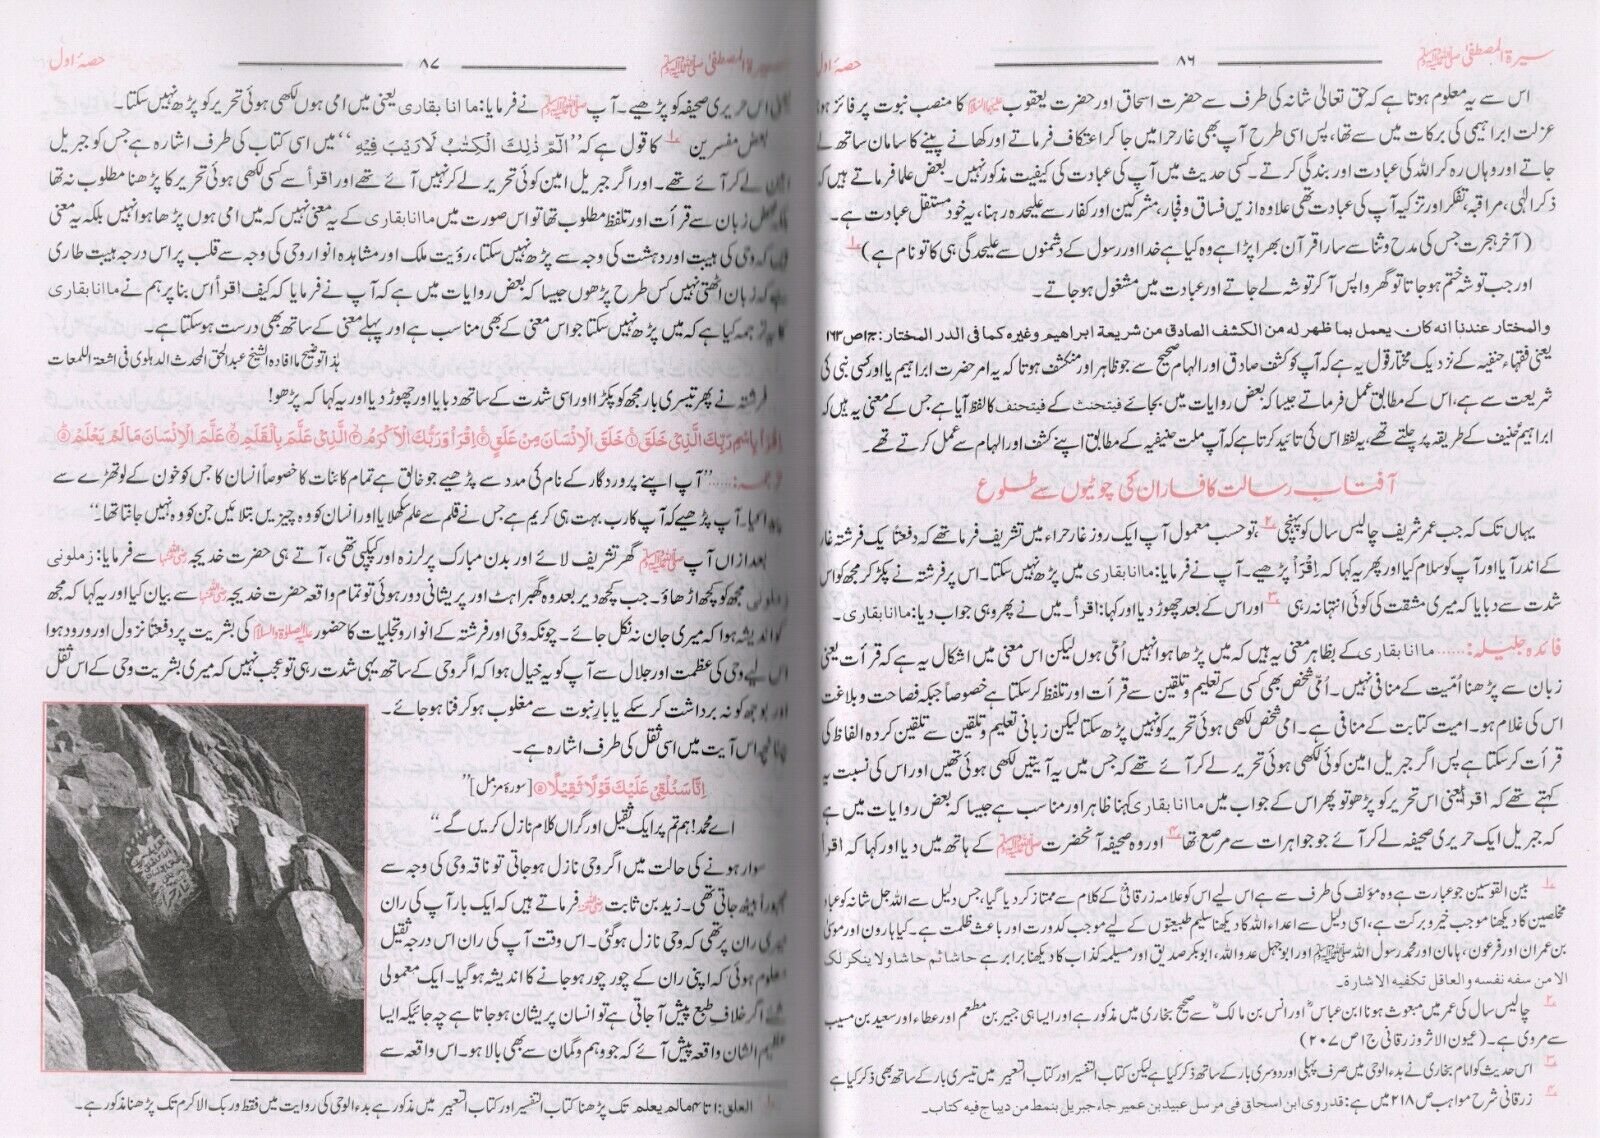 سیرۃ المصطفیٰ ﷺ ۸۶ حصۂ اول
اس سے یہ معلوم ہوتا ہے کہ حق تعالیٰ شانہ کی طرف سے حضرت اسحاق اور حضرت یعقوب علیہما السلام کا منصب نبوت پر فائز ہونا
عزلت ابراہیمی کی برکات میں سے تھا، پس اسی طرح آپ بھی غار حرا میں جا کر اعتکاف فرماتے اور کھانے پینے کا سامان ساتھ لے
جاتے اور وہاں رہ کر اللہ کی عبادت اور بندگی کرتے۔ کسی حدیث میں آپ کی عبادت کی کیفیت مذکور نہیں۔ بعض علما فرماتے ہیں کہ
ذکر الٰہی، مراقبہ، تفکر اور تزکیہ آپ کی عبادت تھی علاوہ ازیں فساق و فجار، مشرکین اور کفار سے علیحدہ رہنا، یہ خود مستقل عبادت ہے۔
( آخر ہجرت جس کی مدح و ثنا سے سارا قرآن بھرا پڑا ہے وہ کیا ہے خدا اور رسول کے دشمنوں سے علیحدگی ہی کا تو نام ہے ) ۱
اور جب توشہ ختم ہو جاتا تو گھر واپس آ کر توشہ لے جاتے اور عبادت میں مشغول ہو جاتے۔
والمختار عندنا انہ کان یعمل بما ظھر لہ من الکشف الصادق من شریعۃ ابراھیم وغیرہ کما فی الدر المختار: ج۱ ص ۱۶۳
یعنی فقہاء حنیفہ کے نزدیک مختار قول یہ ہے کہ آپ کو کشف صادق اور الہام صحیح سے جو ظاہر اور منکشف ہوتا کہ یہ امر حضرت ابراہیم یا اور کسی نبی کی
شریعت سے ہے، اس کے مطابق عمل فرماتے جیسا کہ بعض روایات میں بجائے فیتحنث کے فیتحنف کا لفظ آیا ہے جس کے معنی یہ ہیں کہ
ابراہیم حنیف کے طریقہ پر چلتے تھے، یہ لفظ اس کی تائید کرتا ہے کہ آپ ملت حنیفیہ کے مطابق اپنے کشف اور الہام سے عمل کرتے تھے۔
آفتاب رسالت کا فاران کی چوٹیوں سے طلوع
یہاں تک کہ جب عمر شریف چالیس سال کو پہنچی ۲ تو حسب معمول آپ ایک روز غار حراء میں تشریف فرما تھے کہ دفعتاً ایک فرشتہ غار
کے اندر آیا اور آپ کو سلام کیا اور پھر یہ کہا کہ اِقْرَأْ پڑھیے۔ آپ نے فرمایا: ما انا بقاری میں پڑھ نہیں سکتا۔ اس پر فرشتہ نے پکڑ کر مجھ کو اس
شدت سے دبایا کہ میری مشقت کی کوئی انتہا نہ رہی ۳ اور اس کے بعد چھوڑ دیا اور کہا: اقرأ۔ میں نے پھر وہی جواب دیا: ما انا بقاری۔
فائدہ جلیلہ:...... ما انا بقاری کے بظاہر معنی یہ ہیں کہ میں پڑھا ہوا نہیں اُمّی ہوں لیکن اس معنی میں اشکال یہ ہے کہ قرأت یعنی
زبان سے پڑھنا اُمّیت کے منافی نہیں۔ اُمّی شخص بھی کسی کے تعلیم و تلقین سے قرأت اور تلفظ کر سکتا ہے خصوصاً جبکہ فصاحت و بلاغت
اس کی غلام ہو۔ امیت کتابت کے منافی ہے۔ امی شخص لکھی ہوئی تحریر کو نہیں پڑھ سکتا لیکن زبانی تعلیم و تلقین سے تلقین کردہ الفاظ کی
قرأت کر سکتا ہے پس اگر جبریل امین کوئی لکھی ہوئی تحریر لے کر آئے تھے کہ جس میں یہ آیتیں لکھی ہوئی تھیں اور اس کی نسبت یہ
کہتے تھے کہ اقرأ یعنی اس تحریر کو پڑھو تو پھر اس کے جواب میں ما انا بقاری کہنا ظاہر اور مناسب ہے جیسا کہ بعض روایات میں ہے
کہ جبریل ایک حریری صحیفہ لے کر آئے جو جواہرات سے مرصع تھا ۴ اور وہ صحیفہ آنحضرت ﷺ کے ہاتھ میں دیا اور کہا کہ اقرأ
۱ بین القوسین جو عبارت ہے وہ مؤلف کی طرف سے ہے اس لیے اس کو علامہ زرقانی کے کلام سے ممتاز کر دیا گیا، جس دلیل سے اللہ جل شانہ کو عباد
مخلصین کا دیکھنا موجب خیر و برکت ہے، اسی دلیل سے اعداء اللہ کا دیکھنا سلیم طبیعتوں کے لیے موجب کدورت اور باعث ظلمت ہے۔ کیا ہارون اور موسیٰ
بن عمران اور فرعون، ہامان اور محمد رسول اللہ ﷺ اور ابو جہل عدو اللہ، ابو بکر صدیق اور مسیلمہ کذاب کا دیکھنا برابر ہے حاشا ثم حاشا ولا ینکر ذلک
الا من سفہ نفسہ والعاقل تکفیہ الاشارۃ۔
۲ چالیس سال کی عمر میں مبعوث ہونا ابن عباس اور انس بن مالک سے صحیح بخاری میں مذکور ہے اور ایسا ہی جبیر بن مطعم اور عطاء اور سعید بن مسیب
سے مروی ہے۔ (عیون الاثر و زرقانی ج۱ ص ۲۰۷)
۳ اس حدیث کو امام بخاری نے بدء الوحی میں صرف پہلی اور دوسری بار کے ساتھ ذکر کیا ہے لیکن کتاب التفسیر اور کتاب التعبیر میں تیسری بار کے ساتھ بھی ذکر کیا ہے
۴ زرقانی شرح مواہب ص ۲۱۸ میں ہے: قد روی ابن اسحاق فی مرسل عبید بن عمیر جاء جبریل بنمط من دیباج فیہ کتاب۔
سیرۃ المصطفیٰ ﷺ ۸۷ حصۂ اول
اس حریری صحیفہ کو پڑھیے۔ آپ ﷺ نے فرمایا: ما انا بقاری یعنی میں امی ہوں لکھی ہوئی تحریر کو پڑھ نہیں سکتا۔
بعض مفسرین ۱ کا قول ہے کہ ’’الٓمّٓ ذٰلِکَ الْکِتٰبُ لَارَیْبَ فِیْهِ‘‘ میں اسی کتاب کی طرف اشارہ ہے جس کو جبریل
امین لے کر آئے تھے۔ اور اگر جبریل امین کوئی تحریر لے کر نہیں آئے تھے اور اقرأ سے کسی لکھی ہوئی تحریر کا پڑھنا مطلوب نہ تھا
بلکہ محض زبان سے قرأت اور تلفظ مطلوب تھا تو اس صورت میں ما انا بقاری کے یہ معنی نہیں کہ میں امی ہوں پڑھا ہوا نہیں بلکہ یہ معنی
ہیں کہ وحی کی ہیبت اور دہشت کی وجہ سے پڑھ نہیں سکتا، رؤیت ملک اور مشاہدہ انوار وحی کی وجہ سے قلب پر اس درجہ ہیبت طاری
ہے کہ زبان اٹھتی نہیں کس طرح پڑھوں جیسا کہ بعض روایات میں ہے کہ آپ نے فرمایا کہ کیف اقرأ اس بنا پر ہم نے ما انا بقاری
کا یہ ترجمہ کیا ہے کہ میں پڑھ نہیں سکتا جو اس معنی کے بھی مناسب ہے اور پہلے معنی کے ساتھ بھی درست ہو سکتا ہے۔
ہذا توضیح ما افادہ الشیخ عبد الحق المحدث الدہلوی فی اشعۃ اللمعات
فرشتہ نے پھر تیسری بار مجھ کو پکڑا اور اسی شدت کے ساتھ دبایا اور چھوڑ دیا اور یہ کہا کہ پڑھو!
اِقْرَاْ بِاسْمِ رَبِّكَ الَّذِيْ خَلَقَ ۝۱ خَلَقَ الْاِنْسَانَ مِنْ عَلَقٍ ۝۲ اِقْرَاْ وَرَبُّكَ الْاَكْرَمُ ۝۳ الَّذِيْ عَلَّمَ بِالْقَلَمِ ۝۴ عَلَّمَ الْاِنْسَانَ مَا لَمْ يَعْلَمْ ۝۵
ترجمہ:...... ’’آپ اپنے پروردگار کے نام کی مدد سے پڑھیے جو خالق ہے تمام کائنات کا خصوصاً انسان کا جس کو خون کے لوتھڑے سے
پیدا کیا۔ آپ پڑھیے کہ آپ کا رب بہت ہی کریم ہے جس نے قلم سے علم کھلایا اور انسان کو وہ چیزیں بتلائیں جن کو وہ نہیں جانتا تھا۔‘‘
بعد ازاں آپ ﷺ گھر تشریف لائے اور بدن مبارک پر لرزہ اور کپکپی تھی، آتے ہی حضرت خدیجہ رضی اللہ عنہا سے فرمایا: زملونی
زملونی مجھ کو کچھ اڑھاؤ۔ جب کچھ دیر بعد وہ گھبراہٹ اور پریشانی دور ہوئی تو تمام واقعہ حضرت خدیجہ رضی اللہ عنہا سے بیان کیا اور یہ کہا کہ مجھ
کو اندیشہ ہوا کہ میری جان نہ نکل جائے۔ چونکہ وحی اور فرشتہ کے انوار و تجلیات کا حضور علیہ الصلوٰۃ والسلام کی بشریت پر دفعتاً نزول اور ورود ہوا
اس لیے وحی کی عظمت اور جلال سے آپ کو یہ خیال ہوا کہ اگر وحی کے ساتھ یہی شدت رہی تو عجب نہیں کہ میری بشریت وحی کے اس ثقل
اور بوجھ کو نہ برداشت کر سکے یا بار نبوت سے مغلوب ہو کر فنا ہو جائے۔
چنانچہ اس آیت میں اسی ثقل کی طرف اشارہ ہے۔
اِنَّا سَنُلْقِيْ عَلَيْكَ قَوْلًا ثَقِيْلًا ۝۵ [سورہ مزمل]’’
اے محمد! ہم تم پر ایک ثقیل اور گراں کلام نازل کریں گے۔‘‘
سوار ہونے کی حالت میں اگر وحی نازل ہو جاتی تو ناقہ وحی کی وجہ سے
مجبوراً بیٹھ جاتی تھی۔ زید بن ثابت رضی اللہ عنہ فرماتے ہیں کہ ایک بار آپ کی ران
میری ران پر تھی کہ وحی نازل ہو گئی۔ اس وقت آپ کی ران اس درجہ ثقیل
معلوم ہوئی کہ اپنی ران کے چور چور ہو جانے کا اندیشہ ہو گیا۔ ایک معمولی
شئے اگر خلاف طبع پیش آ جاتی ہے تو انسان پریشان ہو جاتا ہے چہ جائیکہ ایسا
عظیم الشان واقعہ پیش آئے کہ جو وہم و گمان سے بھی بالا ہو۔ اس واقعہ سے
۱ العلق: ۱ تا ۴ مالم یعلم تک پڑھنا کتاب التفسیر اور کتاب التعبیر میں مذکور ہے بدء الوحی کی روایت میں فقط وربک الاکرم تک پڑھنا مذکور ہے۔